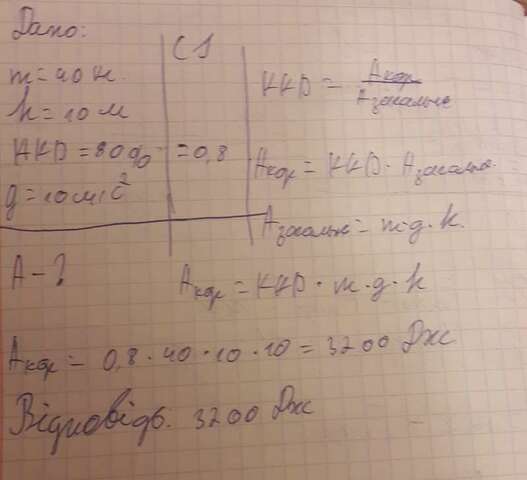 Дано:
СІ
m = 40 к
h = 10 м
ККД = 80% = 0,8
g = 10 м/с²
ККД = Aкор / Aзагальне
Aкор = ККД · Aзагальне
Aзагальне = m · g · h.
A - ?
Aкор = ККД · m · g · h
Aкор = 0,8 · 40 · 10 · 10 = 3200 Дж
Відповідь: 3200 Дж